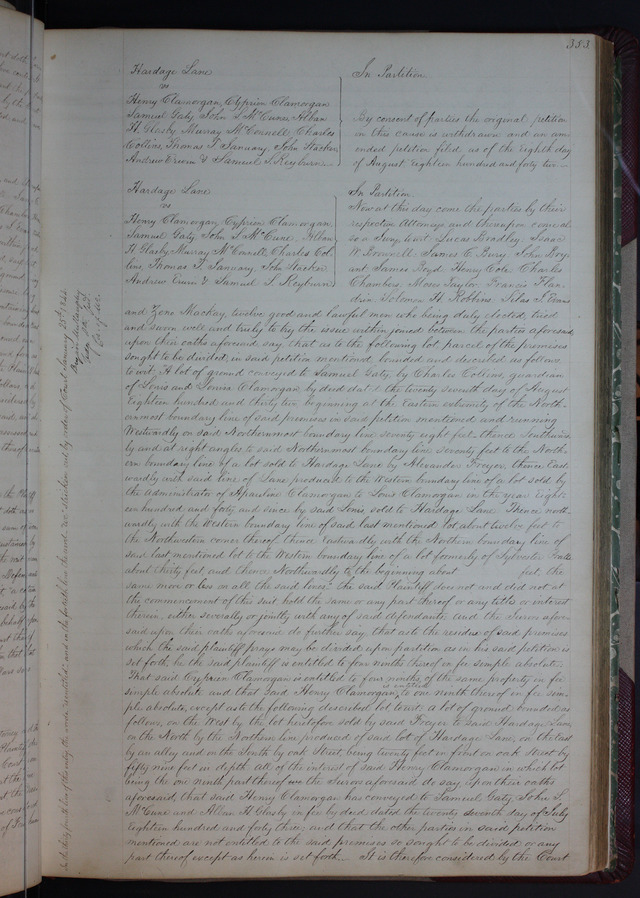 383
Hardage Lane
vs
Henry Clamorgan, Cyprian Clamorgan
Samuel Gaty, John S. McCune, Allan
H Glasby Murray McConnell, Charles
Collins, Thomas T January, John Stacker
Andrew Erwin & Samuel S. Rayburn
In Partition
By consent of parties the original petition
in this cause is withdrawn and an am
ended petition filed as of the eighth day
of August Eighteen hundred and forty two
Hardage Lane
vs
Henry Clamorgan, Cyprian Clamorgan,
Samuel Gaty, John S. McCune, Allan
H Glasby Murray McConnell, Charles Col
lins, Thomas T. January, John Stacker
Andrew Erwin & Samuel S. Rayburn
In Partition
Now at this day come the parties by their
respective Attorneys and thereupon come al
so a Jury, towit Lucas Bradley, Isaac
W. Brownell James C. Barry John Bry
ant James Boyd Henry Cole Charles
Chambers Moses Taylor Francis Flan
drin Solomon H Robbins Silas S. Evans
and Zeno Mackay, twelve good and lawful men who being duly elected, tried
and sworn well and truly to try the issue within joined between the parties aforesaid
upon their oaths aforesaid, say, that as to the following lot parcel of the premises
sought to be divided, in said petition mentioned, bounded and described as follows
to wit, A lot of ground conveyed to Samuel Gaty, by Charles Collins, guardian
of Louis and Louisa Clamorgan by deed dat'd the twenty seventh day of August
Eighteen hundred and thirty two, beginning at the Eastern extremity of the North
ernmost boundary line of said premises in said petition mentioned and running
Westwardly on said Northernmost boundary line seventy eight feet thence Southward
ly and at right angles to said Northernmost boundary line seventy feet to the North
ern boundary line of a lot sold to Hardage Lane by Alexander Frayer, thence East
wardly with said line of Lane produced to the Western boundary line of a lot sold by
the Administrator of Apauline Clamorgan to Louis Clamorgan in the year eight
een hundred and forty and since by said Louis sold to Hardage Lane Thence north
wardly with the Western boundary line of said last mentioned lot about twelve feet to
the Northwestern corner thereof thence Eastwardly with the Northern boundary line of
said last mentioned lot to the Western boundary line of a lot formerly of Sylvester
about thirty feet, and thence Northwardly to the beginning about feet the
same more or less on all the said lines, the said Plaintiff does not and did not at
the commencement of this suit hold the same or any part thereof or any title or interest
therein, either severally or jointly with any of said defendants, And the Jurors afore-
said upon their oaths aforesaid do further say, that as to the residue of said premises
which the said plaintiff prays may be divided upon partition as in his said petition is
set forth, he the said plaintiff is entitled to four ninths thereof in fee simple absolute;
That said Cyprian Clamorgan is entitled to four ninths of the same property in fee
simple absolute and that said Henry Clamorgan is entitled to one ninth thereof in fee sim
ple absolute, except as to the following described lot towit: a lot of ground bounded as
follows, on the West by the lot heretofore sold by said Frayer to said Hardage Lane,
on the North by the Northern line produced of said lot of Hardage Lane, on the East
by an alley and on the South by oak Street, being twenty feet in front on oak Street by
fifty nine feet in depth all of the interest of said Henry Clamorgan in which lot
being the one ninth part thereof we the Jurors aforesaid do say upon their oaths
aforesaid, that said Henry Clamorgan has conveyed to Samuel Gaty, John S.
McCune and Allan H Glasby in fee by deed dated the twenty seventh day of July
Eighteen hundred and forty three; and that the other parties in said petition
mentioned are not entitled to the said premises so sought to be divided or any
part thereof except as herein is set forth. It is therefore considered by the Court